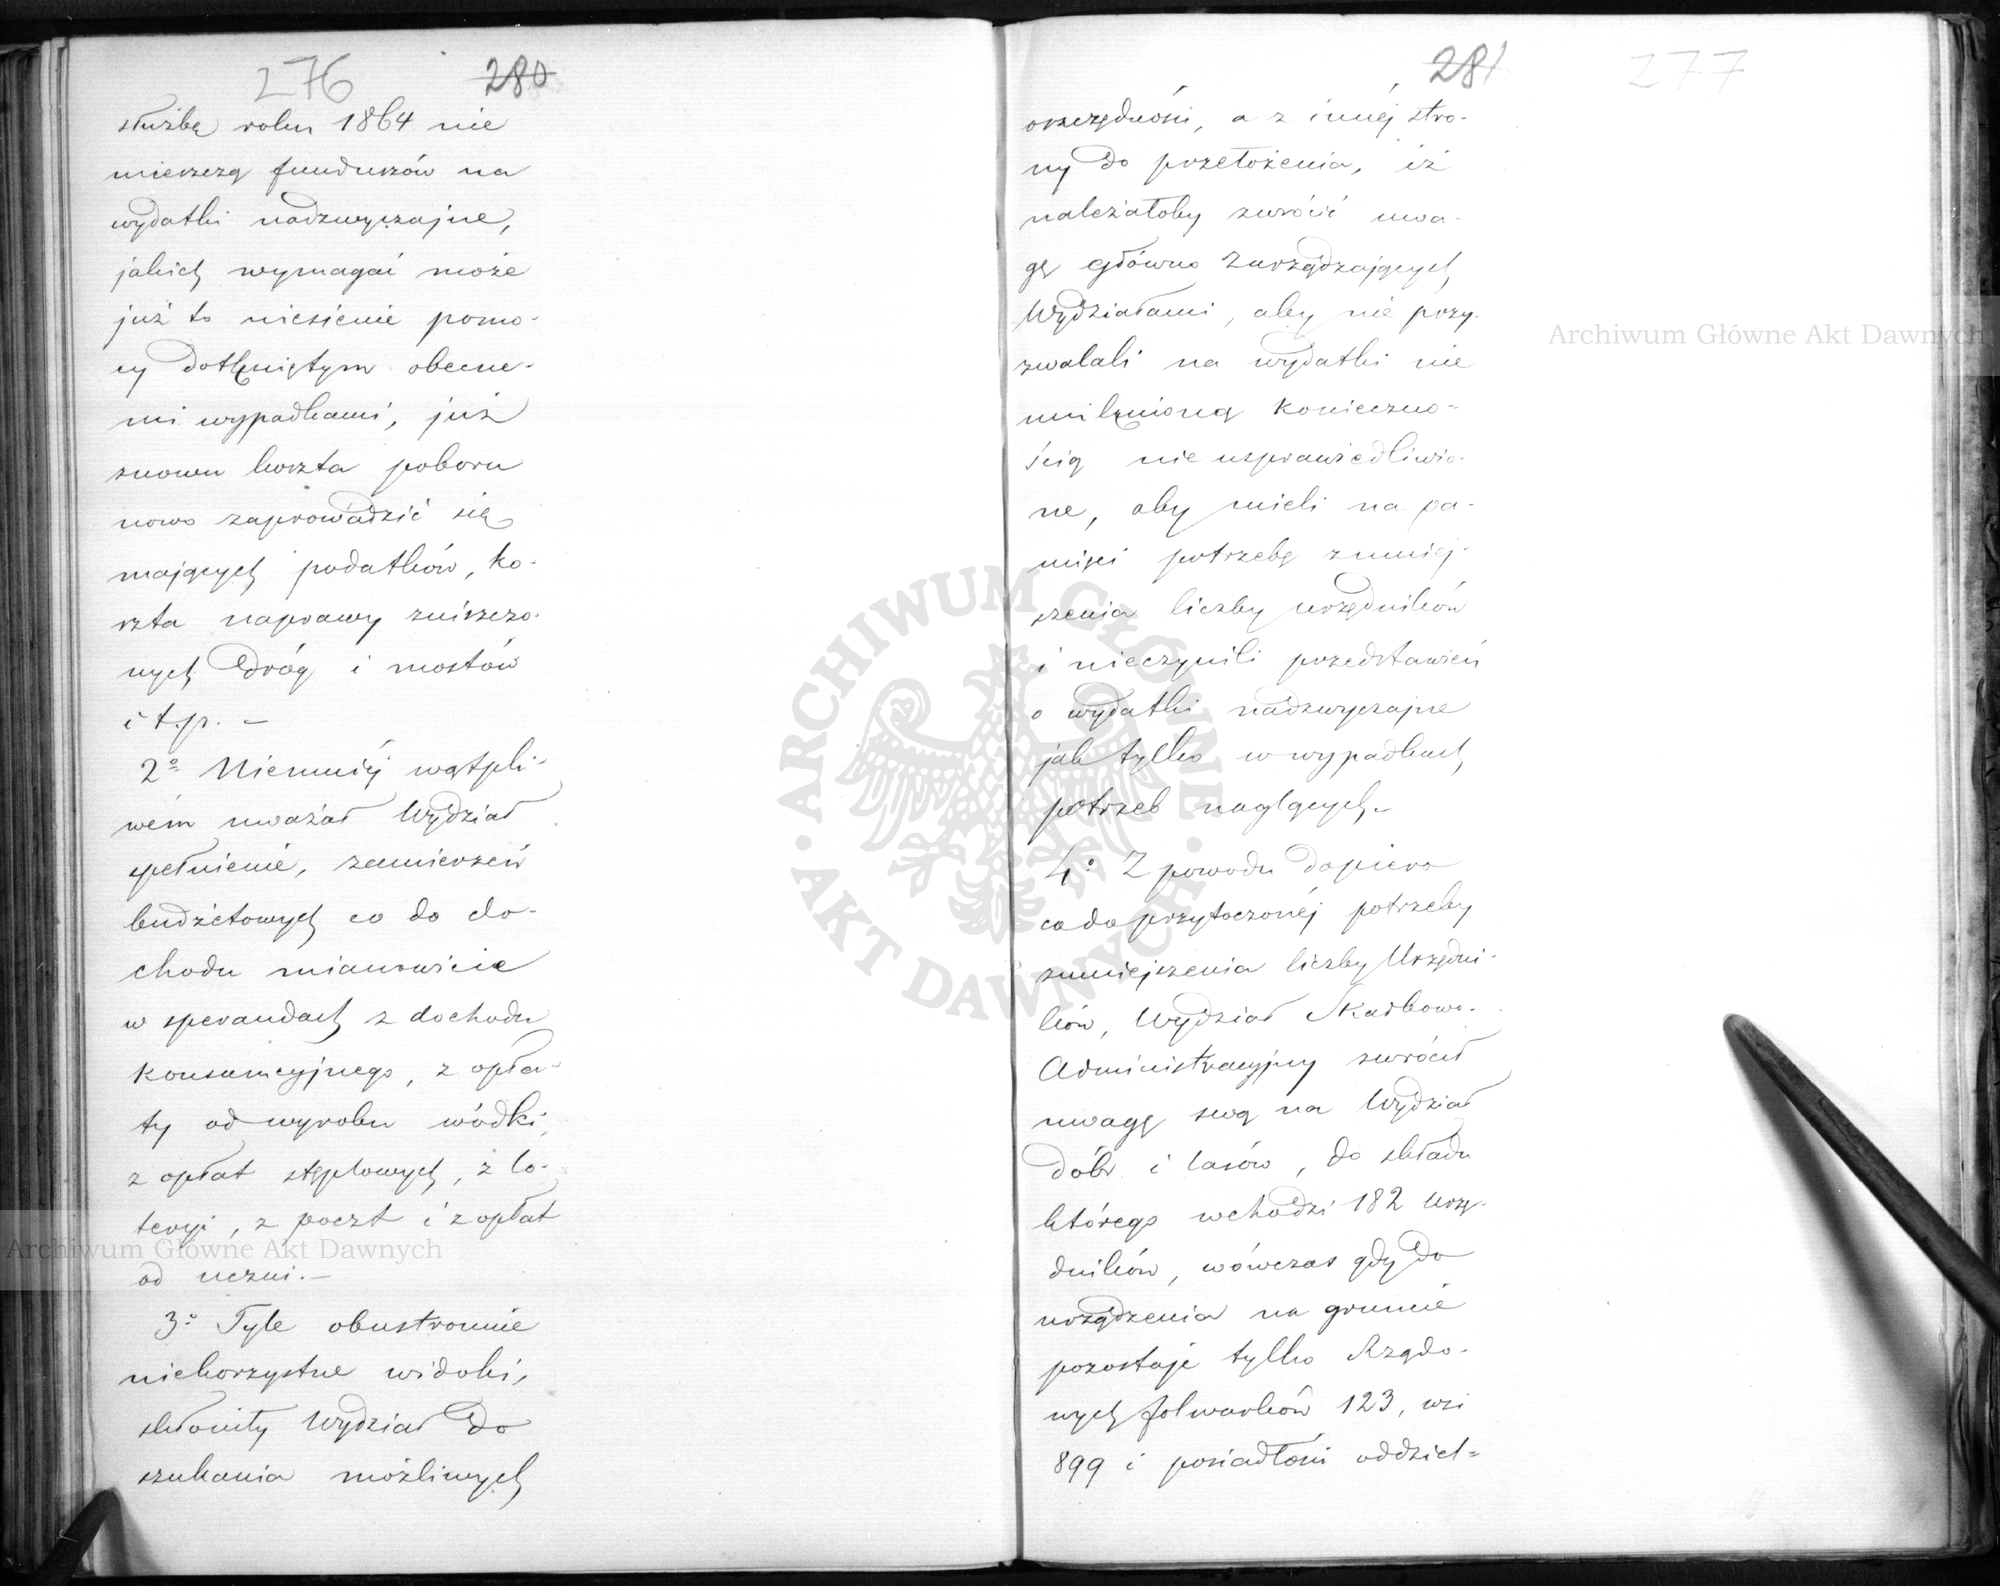 276 280
służbę roku 1864 nie
mieszczą funduszów na
wydatki nadzwyczajne,
jakich wymagać może
już to niesienie pomo-
cy dotkniętym obecne-
mi wypadkami, już
znowu koszta poboru
nowo zaprowadzić się
mających podatków, ko-
szta naprawy zniszczo-
nych dróg i mostów
i t.p. –
2o Niemniéj wątpli-
wém uważał Wydział
spełnienie, zamierzeń
budżetowych co do do-
chodu mianowicie
w sperandach z dochodu
konsumcyjnego, z opła-
ty od wyrobu wódki,
z opłat stęplowych, z lo-
teryi, z poczt i z opłat
od uczni. –
3o Tyle obustronnie
niekorzystne widoki,
skłoniły Wydział do
szukania możliwych
281 277
oszczędności, a z innéj stro-
ny do przełożenia, iż
należałoby zwrócić uwa-
gę Główno Zarządzających
Wydziałami, aby nie przy-
zwalali na wydatki nie
uniknioną konieczno-
ścią nie usprawiedliwio-
ne, aby mieli na pa-
mięci potrzebę zmniej-
szenia liczby urzędników
i nieczynili przedstawień
o wydatki nadzwyczajne
jak tylko w wypadkach
potrzeb naglących. –
4o Z powodu dopiero
co do przytoczonéj potrzeby
zmniejszenia liczby Urzędni-
ków, Wydział Skarbowo-
Administracyjny zwrócił
uwagę swą na Wydział
dóbr i lasów, do składu
którego wchodzi 182 Urzę-
dników, wówczas gdy do
urządzenia na gruncie
pozostaje tylko Rządo-
wych folwarków 123, wsi
899 i posiadłości oddziel-
Archiwum Główne Akt Dawnych
Archiwum Główne Akt Dawnych
ARCHIWUM GŁÓWNE · AKT DAWNYCH ·